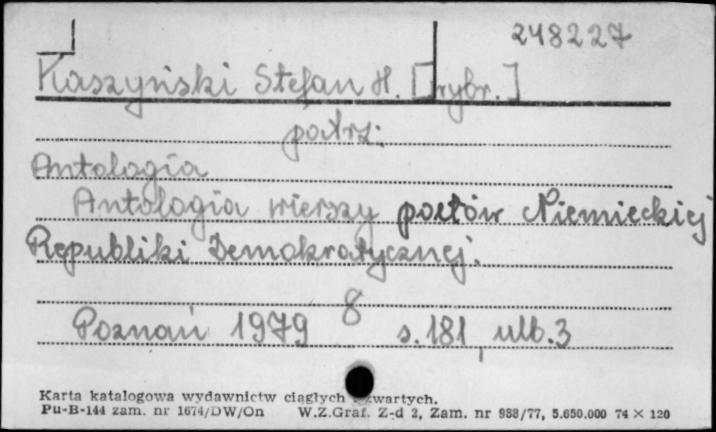 248227
Kaszyński Stefan H. [wybr.]
patrz:
Antologia
Antologia wierszy poetów Niemieckiej
Republiki Demokratycznej.
8
Poznań 1979 s. 181, ulb. 3
Karta katalogowa wydawnictw ciągłych zwartych.
Pu-B-144 zam. nr 1674/DW/On W.Z.Graf. Z-d 2, Zam. nr 988/77, 5.650.000 74 × 120